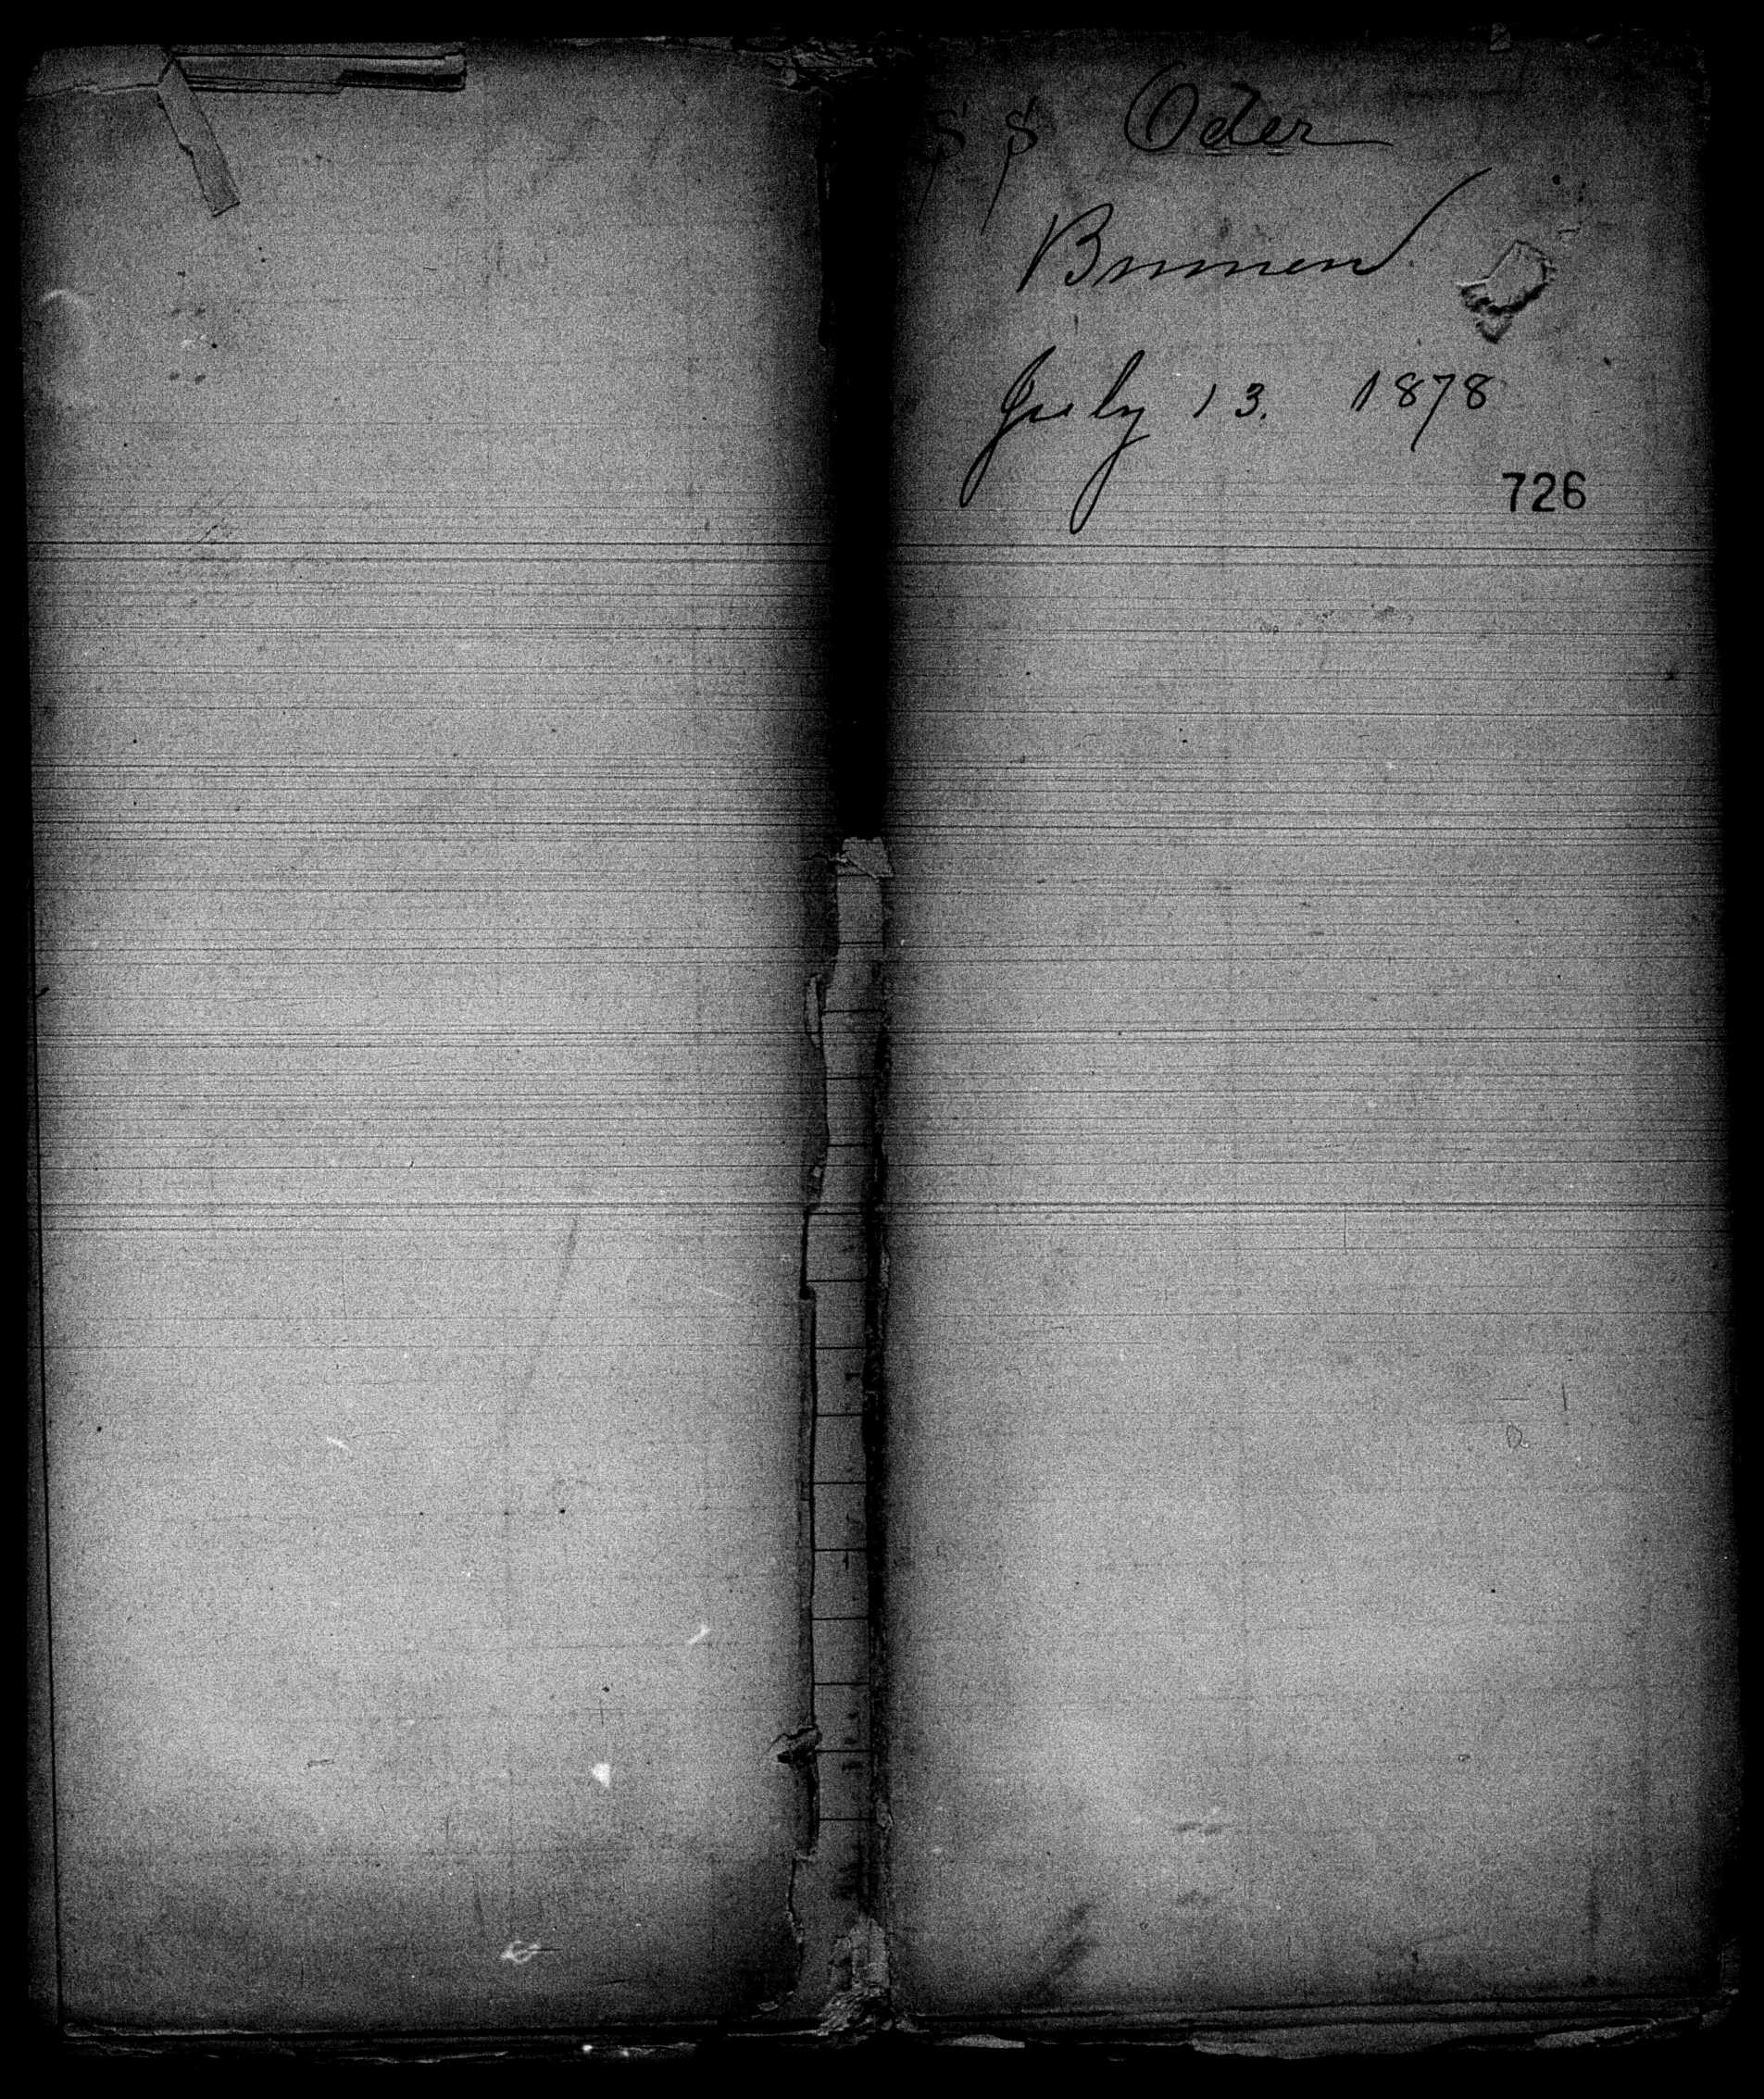 S S Oder
Bremen
July 13. 1878
726